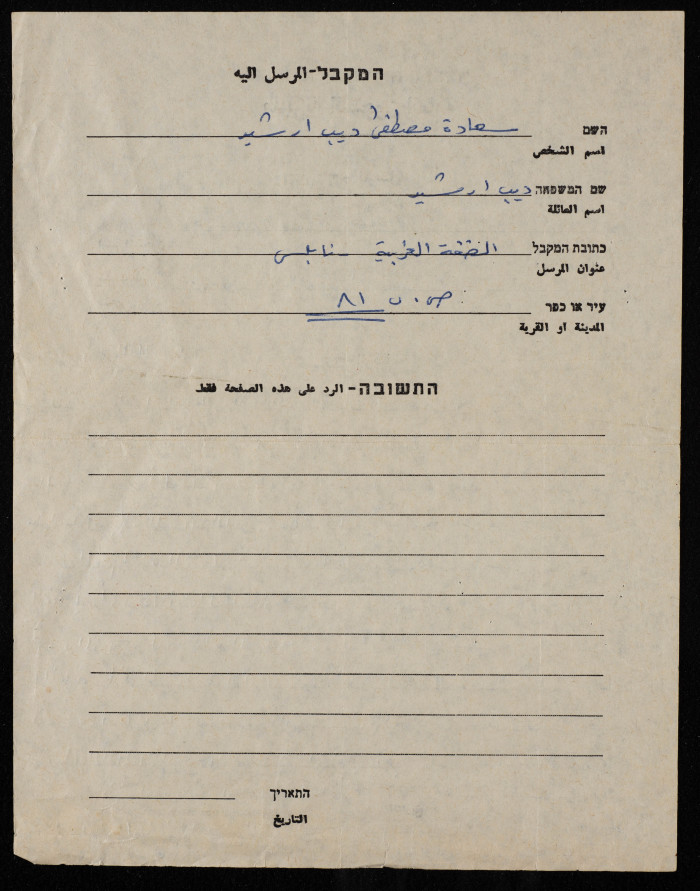 המקבל-المرسل اليه
השם سعادة مصطفى ديب ارشيد
اسم الشخص
שם המשפחה ديب ارشيد
اسم العائلة
כתובת המקבל الضفة الغربية - نابلس
عنوان المرسل
עיר או כפר ص.ب ٨١
المدينة او القرية
התשובה- الرد على هذه الصفحة فقط
התאריך
التاريخ